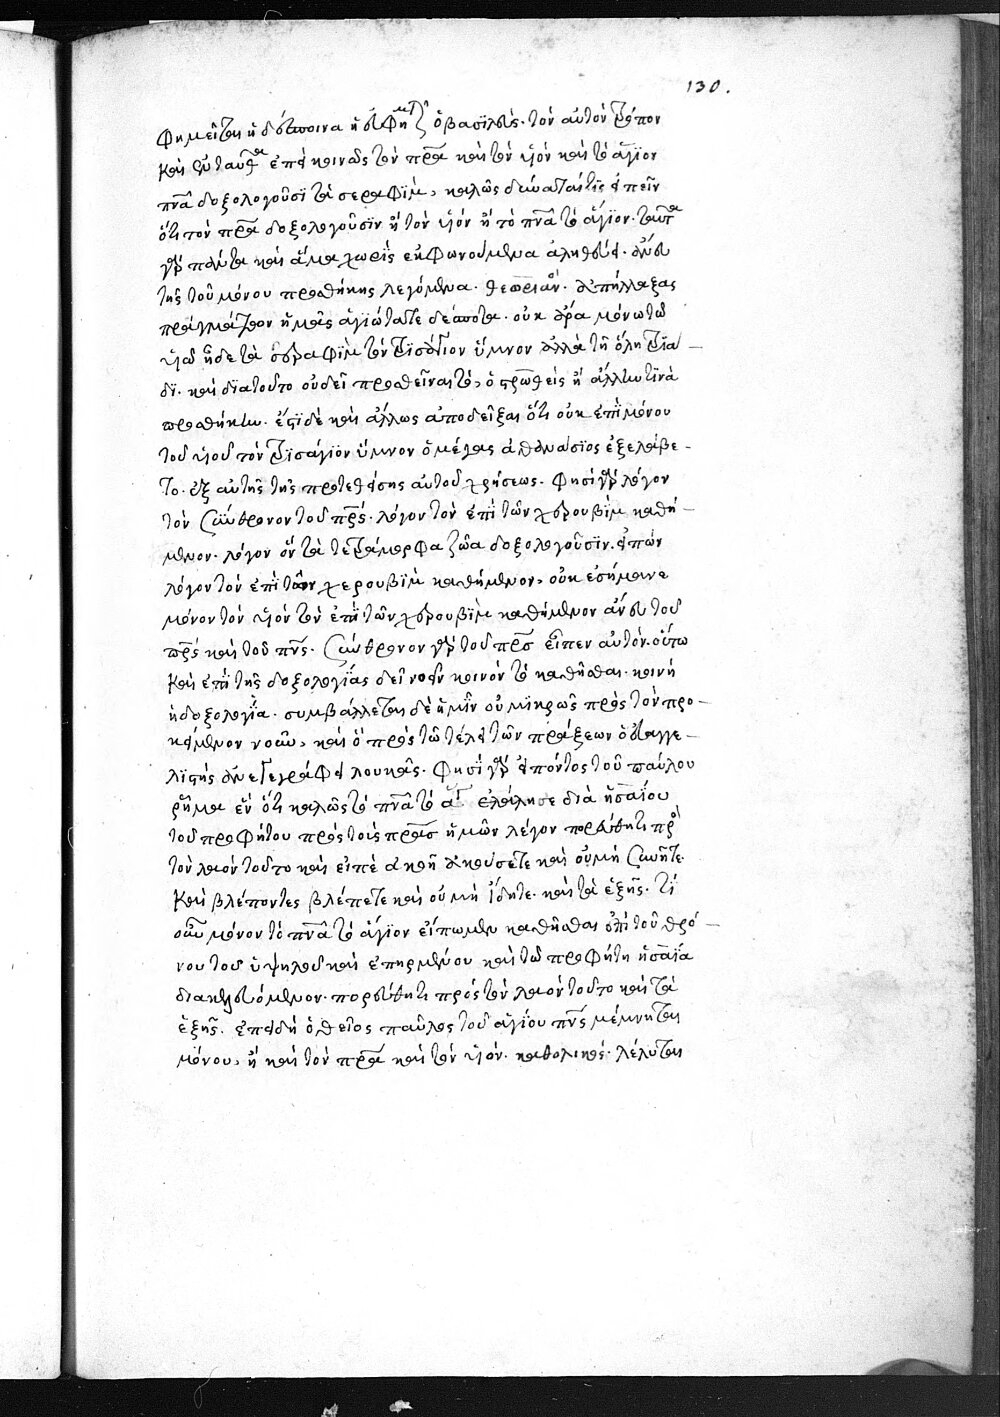 130.
φημεῖται ἡ δέσποινα ἢ εὐφημεῖται ὁ βασιλεύς. τὸν αὐτὸν τρόπον
καὶ ἐνταῦθα ἐπεὶ κοινῶς τὸν πρ̅α καὶ τὸν υἱὸν καὶ τὸ ἅγϊον
πν̅α δοξολογοῦσϊ τὰ σεραφὶμ, καλῶς δύναταί τις εἰπεῖν
ὅτι τὸν πρ̅α δοξολογοῦσϊν ἢ τὸν υἱὸν ἢ τὸ πν̅α τὸ ἅγϊον. ταῦτα
γὰρ πάντα καὶ ἅμα χωρὶς ἐκφωνούμενα ἀληθεύει. ἄνευ
τῆς τοῦ μόνου προσθήκης λεγόμενα. ἀπήλλαξας
πραγμάτων ἡμᾶς ἁγιώτατε δέσποτα. οὐκ ἄρα μόνω τῶ
υἱῶ ᾖδε τὰ σεραφὶμ τὸν τρισάγιον ὕμνον ἀλλὰ τῇ ὅλη τριά-
δϊ. καὶ διατοῦτο οὐδεῖ προσθεῖναι τὸ, ὁ σταυρωθεὶς ἢ ἄλλην τϊνὰ
προσθήκην. ἔστϊ δὲ καὶ ἄλλως ἀποδεῖξαι ὅτι οὐκ ἐπὶ μόνου
τοῦ υἱοῦ τὸν τρισάγϊον ὕμνον ὁ μέγας ἀθανάσϊος ἐξελάβε-
το. ἐξ αὐτῆς τῆς προτεθείσης αὐτοῦ χρήσεως. φησὶ γὰρ λόγον
τὸν σύνθρονον τοῦ πρ̅ς. λόγον τὸν ἐπὶ τῶν χερουβὶμ καθή-
μενον. λόγον ὃν τὰ τετράμορφα ζῶα δοξολογοῦσϊν. εἰπὼν
λόγον τὸν ἐπὶ τῶν χερουβὶμ καθήμενον, οὐκ ἐσήμαινε
μόνον τὸν υἱὸν τὸν ἐπὶ τῶν χερουβὶμ καθήμενον ἄνευ τοῦ
πρ̅ς καὶ τοῦ πν̅ς. σύνθρονον γὰρ τοῦ πρ̅σ εἶπεν αὐτόν. οὕτω
καὶ ἐπὶ τῆς δοξολογίας δεῖ νοεῖν κοινὸν τὸ καθῆσθαι. κοινὴ
ἡ δοξολογία. συμβάλλεται δὲ ἡμῖν οὐ μικρῶς πρὸς τὸν προ-
κείμενον νοῦν, καὶ ὃ πρὸς τῶ τέλει τῶν πράξεων ὁ εὐαγγε-
λϊστὴς ἀνεγεγράφει λουκᾶς. φησὶ γὰρ εἰπόντος τοῦ παύλου
ῥῆμα ἓν ὅτι καλῶς τὸ πν̅α τὸ ἅγ ἐλάλησε διὰ ἡσαΐου
τοῦ προφήτου πρὸς τοὺς πρ̅ασ ἡμῶν λέγον πορεύθητι πρὸς
τὸν λαὸν τοῦτο καὶ εἰπὲ ἀκοῇ ἀκούσετε καὶ οὐ μὴ συνῆτε.
καὶ βλέποντες βλέπετε καὶ οὐ μὴ ἴδητε. καὶ τὰ ἑξῆς. τί
οὖν μόνον τὸ πν̅α τὸ ἅγϊον εἴπωμεν καθῆσθαι ἐπὶ τοῦ θρό-
νου τοῦ ὑψηλοῦ καὶ ἐπηρμένου καὶ τῶ προφήτη ἡσαΐα
διακελευόμενον. πορεύθητι πρὸς τὸν λαὸν τοῦτο καὶ τὰ
ἑξῆς. ἐπειδὴ ὁ θεῖος παῦλος τοῦ ἁγίου πν̅ς μέμνηται
μόνου, ἢ καὶ τὸν πρ̅α καὶ τὸν υἱόν. καθολικός. λέλυται